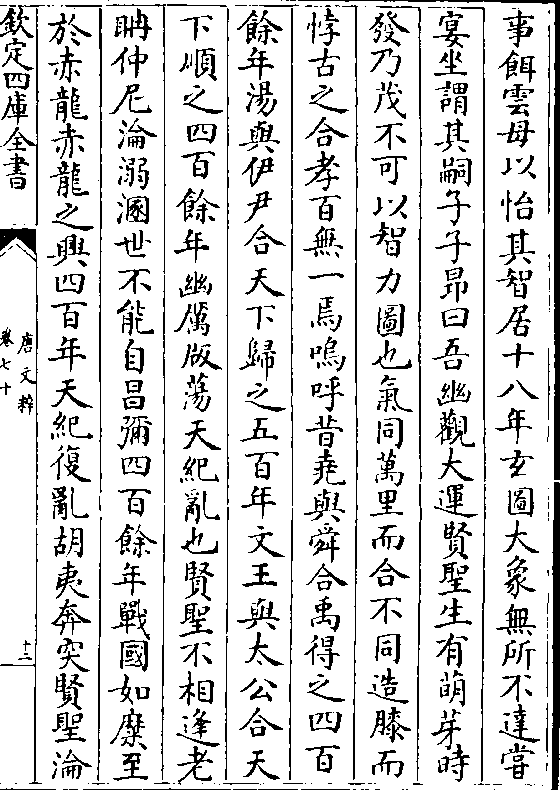 事餌雲母以怡其智居十八年玄圖大象無所不達嘗
宴坐謂其嗣子子昂曰吾幽觀大運賢聖生有萌芽時
發乃茂不可以智力圖也氣同萬里而合不同造膝而
悖古之合孝百無一焉嗚呼昔堯與舜合禹得之四百
餘年湯與伊尹合天下歸之五百年文王與太公合天
下順之四百餘年幽厲版蕩天紀亂也賢聖不相逢老
聃仲尼淪溺溷世不能自昌彌四百餘年戰國如糜至
於赤龍赤龍之興四百年天紀復亂胡夷奔突賢聖淪
欽定四庫全書
唐文粹
卷七十
十二